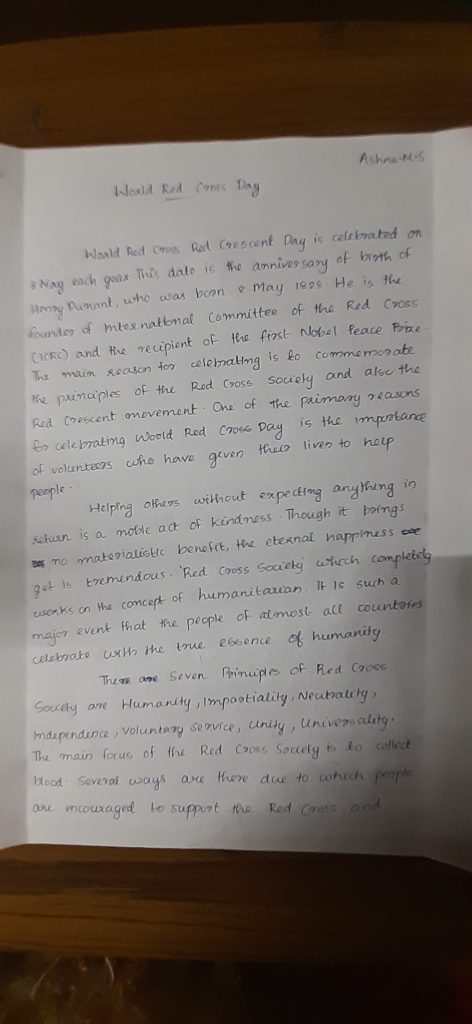 Ashna.M.S
World Red Cross Day
World Red Cross Red Crescent Day is celebrated on
8 May each year. This date is the anniversary of birth of
Henry Dunant, who was born 8 May 1828. He is the
founder of International Committee of the Red Cross
(ICRC) and the recipient of the first Nobel Peace Prize.
The main reason for celebrating is to commemorate
the principles of the Red Cross Society and also the
Red Crescent movement. One of the primary reasons
for celebrating World Red Cross Day is the importance
of volunteers who have given their lives to help
people.
Helping others without expecting anything in
return is a noble act of kindness. Though it brings
no materialistic benefit, the eternal happiness
get is tremendous. 'Red Cross Society' which completely
works on the concept of humanitarian. It is such a
major event that the people of almost all countries
celebrate with the true essence of humanity.
There are Seven Principles of Red Cross
Society are Humanity, Impartiality, Neutrality,
Independence, Voluntary service, unity, Universality.
The main focus of the Red Cross Society is to collect
blood. Several ways are there due to which people
are encouraged to support the Red Cross and